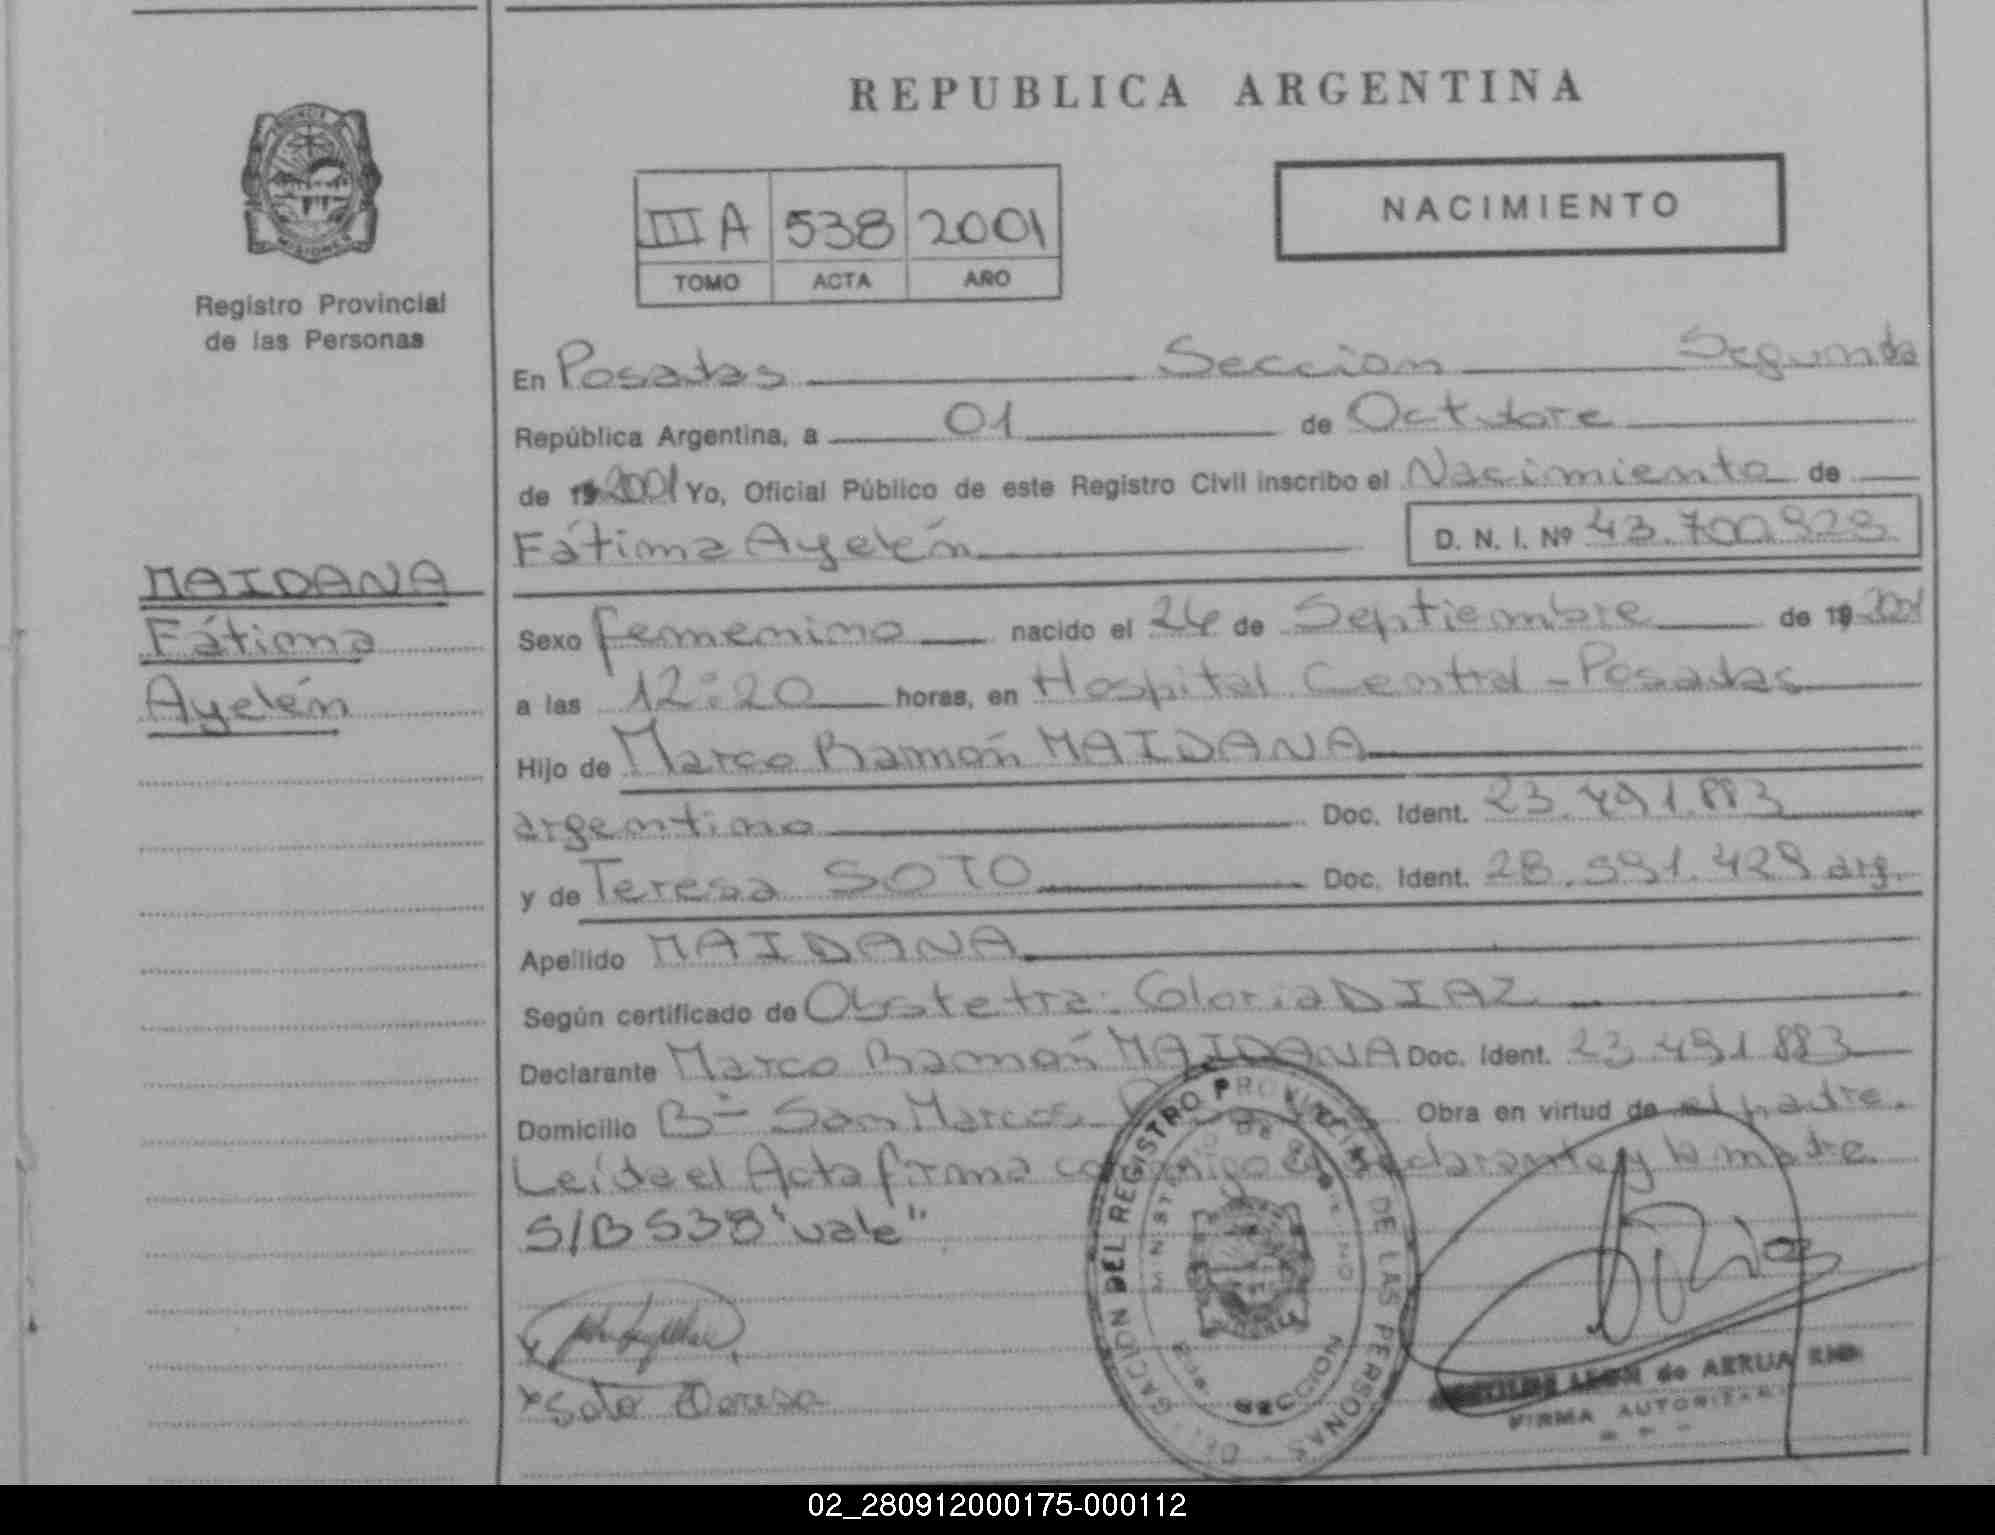 REPUBLICA ARGENTINA
NACIMIENTO
III A 538 2001
TOMO ACTA AÑO
MISIONES
Registro Provincial
de las Personas
MAIDANA
Fátima
Ayelén
En Posadas Seccion Segunda
República Argentina, a 01 de Octubre
de 2001 Yo, Oficial Público de este Registro Civil inscribo el Nacimiento de
Fátima Ayelén D. N. I. Nº 43.700.929
Sexo femenino nacido el 24 de Septiembre de 19 2001
a las 12:20 horas, en Hospital Central - Posadas
Hijo de Marco Ramón MAIDANA
argentino Doc. Ident. 23.491.883
y de Teresa SOTO Doc. Ident. 28.591.429 arg.
Apellido MAIDANA
Según certificado de Obstetra: Gloria DIAZ
Declarante Marco Ramón MAIDANA Doc. Ident. 23.491.883
Domicilio Bº San Marcos Obra en virtud de el padre.
Leída el Acta firma conmigo el declarante y la madre.
S/B 538 "vale"
Soto Teresa
DELEGACION DEL REGISTRO PROVINCIAL DE LAS PERSONAS
MINISTERIO DE GOBIERNO
SECCION
LEON de AERUA
FIRMA AUTORIZADA
02_280912000175-000112